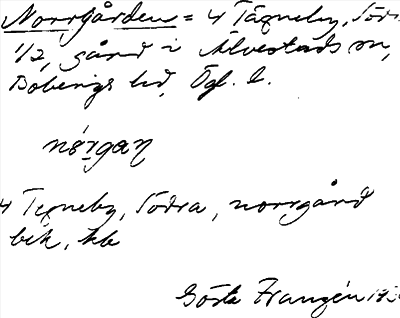 Norrgården = 4 Täpneby, Söd
1/2, gård i Alvestads sn,
Bobergs hd, Ögl. l.
nǿrgaɲ
4 Tepneby, Södra, norrgård
bik, hb
Gösta Franzén 193